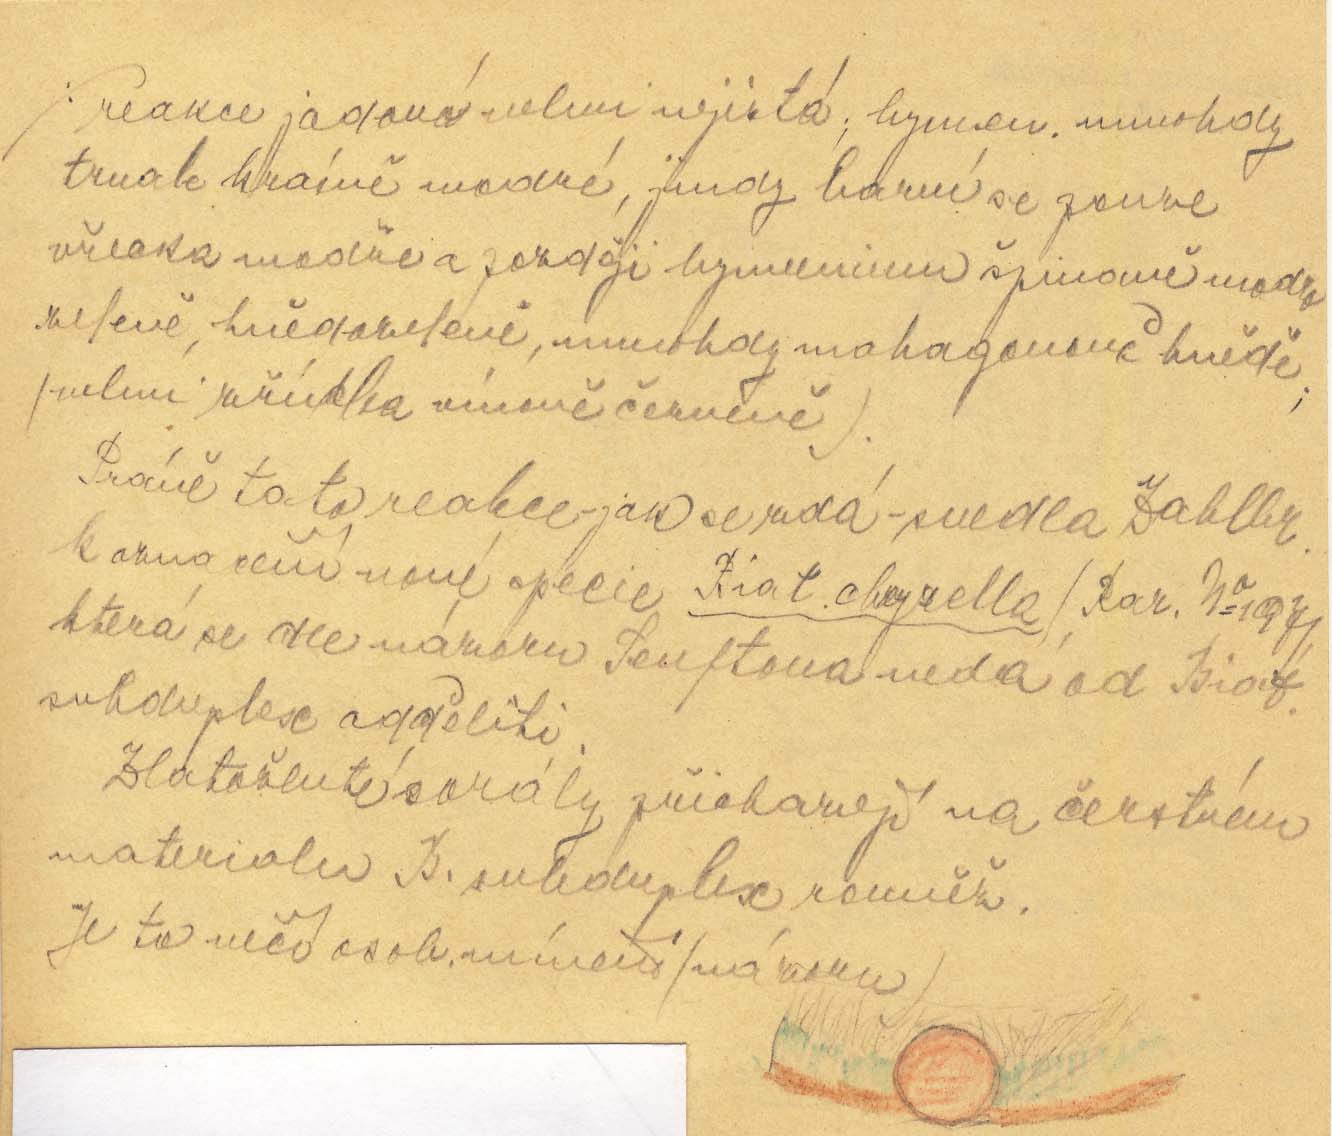 reakce jodová velmi nejistá; hymen. mnohdy
trvale krásně modré, jindy barví se pouze
vřecka modře a později hymenium špinavě modro
zeleně, hnědozeleně, mnohdy mahagonově hnědě;
(velmi zřídka vínově červeně).
Právě tato reakce - jak se zdá - svedla Zahlbr.
k označení nové specie Biat. chrysella (Rar. No
která se dle názoru Senftova nedá od Biat.
subduplex odděliti.
Zlatožluté sorály přicházejí na čerstvém
materialu B. subduplex rovněž.
Je to věcí osob. mínění (názoru)